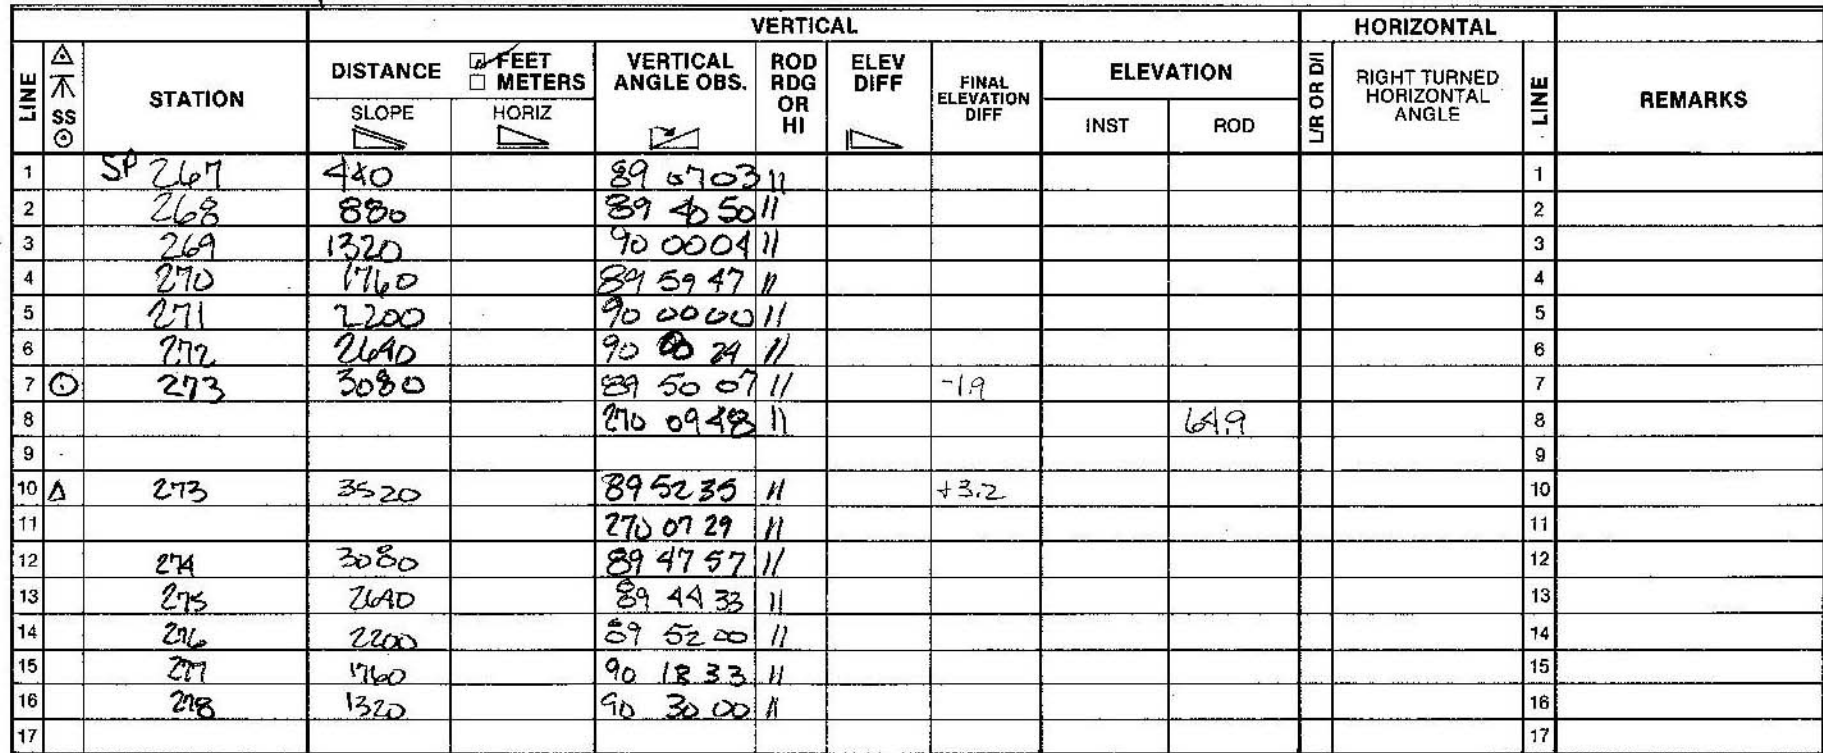 VERTICAL HORIZONTAL
LINE SS STATION DISTANCE FEET METERS SLOPE HORIZ VERTICAL ANGLE OBS. ROD RDG OR HI ELEV DIFF FINAL ELEVATION DIFF ELEVATION INST ROD L/R OR D/I RIGHT TURNED HORIZONTAL ANGLE LINE REMARKS
1 SP 267 440 89 07 03 11 1
2 268 880 89 40 50 11 2
3 269 1320 90 00 04 11 3
4 270 1760 89 59 47 11 4
5 271 2200 90 00 00 11 5
6 272 2640 90 00 24 11 6
7 273 3080 89 50 07 11 -1.9 7
8 270 09 48 11 64.9 8
9 9
10 273 3520 89 52 35 11 +3.2 10
11 270 07 29 11 11
12 274 3080 89 47 57 11 12
13 275 2640 89 44 33 11 13
14 276 2200 89 52 00 11 14
15 277 1760 90 18 33 11 15
16 278 1320 90 30 00 11 16
17 17